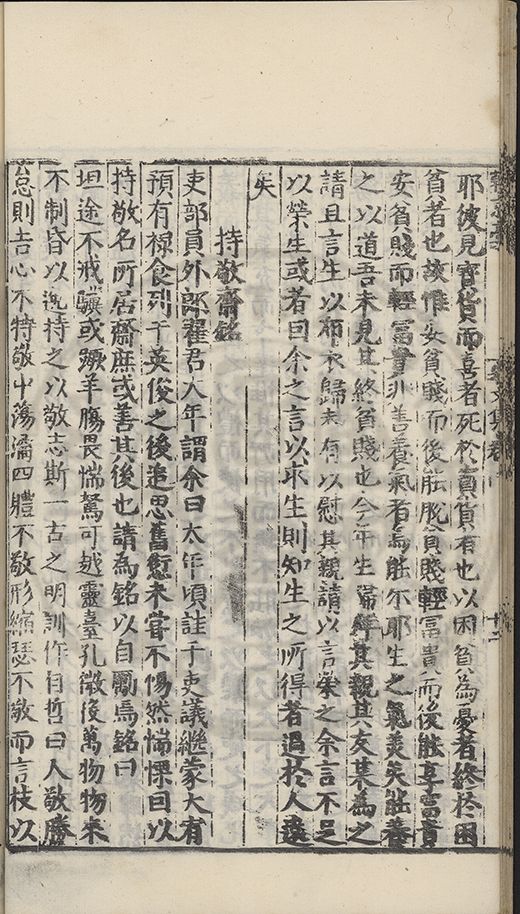 耶彼見寶貨而喜者死於寶貨者也以困貧為憂者終於困
貧者也故惟安貧賤而後能脫貧賤輕富貴而後能享富貴
安貧賤而輕富貴非善養氣者焉能尔耶生之氣羙矣能養
之以道吾未見其終貧賤也今年生 其親其友某為之
請且言生以布衣歸未有以慰其親請以言榮之余言不足
以榮生或者曰余之言以求生則知生之所得者過於人遠
矣
持敬齋銘
吏部員外郎翟君大年謂余曰大年頃註于吏議繼蒙大有
預有祿食列于英俊之後追思舊愆未嘗不惕然惴慄回以
持敬名所居齋庶或善其後也請為銘以自勵焉銘曰
坦途不戒驥或蹶羊腸畏惴駑可越靈臺孔微後萬物物来
不制昏以 持之以敬志斯一古之明訓作自哲曰人敬勝
怠則吉心不持敬中蕩潏四體不敬形 瑟不敬而言枝以